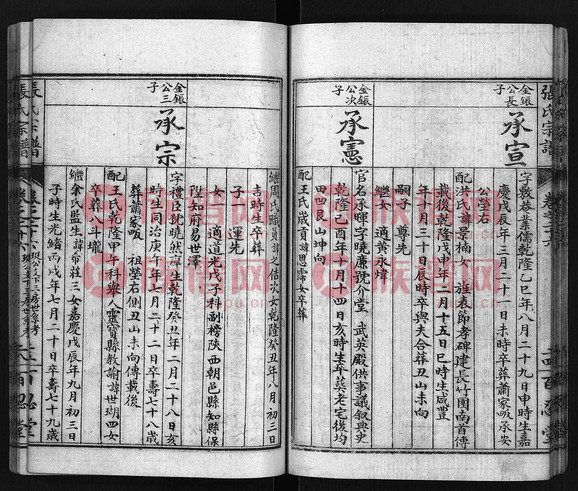 張氏宗譜
金銀公長子
承宣
字敷恭業儒乾隆乙巳年八月二十九日申時生嘉
慶戊辰年三月二十一日未時卒葬蕭家畈承安
公塋右
配洪氏諱景楠女 旌表節孝碑建長竹園南首傳
載後乾隆戊申年二月十五日巳時生咸豐
年十月三十日辰時卒與夫合葬丑山未向
嗣子 尊先
女 適黃永煒
金銀公次子
承憲
官名承暉字曉廉號八堂 武英殿供事議叙典史
乾隆己酉年十月十四日亥時生年葬老宅後均
田凹艮山坤向
配王氏歲貢諱思霖女卒葬
繼周氏職員諱之信次女乾隆癸丑年八月初三日
吉時生卒葬
子 運先
女 適道光戊子科副榜陝西朝邑縣知縣保
陞知府易世澤
金銀公三子
承宗
字禮臣號曉然廩生乾隆癸丑年二月二十八日亥
時生同治庚午年七月二十二日卒壽七十八歲
葬蕭家畈 祖塋右側丑山未向傳載後
配王氏乾隆甲午科舉人靈寶縣教諭諱世瑚四女
卒葬斗壠
繼余氏監生諱命莊三女嘉慶戊辰年九月初三日
子時生光緒丙戌年七月二十日卒壽七十九歲
張氏宗譜
百忍堂
族譜网